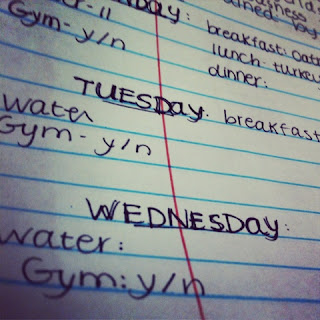 breakfast: oat
Gym - y/n
lunch - turkey
dinner:
TUESDAY: breakfast
water
Gym - y/n
WEDNESDAY:
water:
Gym: y/n